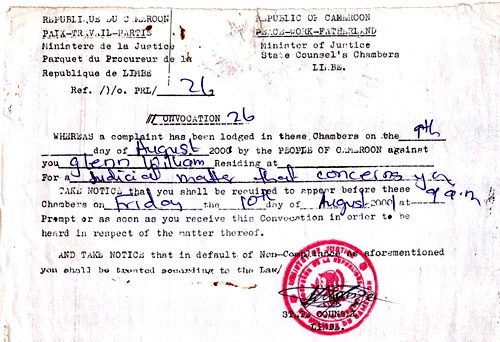 REPUBLIQUE DU CAMEROON
PAIX-TRAVAIL-PARTIE
Ministere de la Justice
Parquet du Procureur de la
Republique de LIMBE
Ref. /)/o. PRL/ 26
REPUBLIC OF CAMEROON
PEACE-WORK-FATHERLAND
Minister of Justice
State Counsel's Chambers
LIMBE.
CONVOCATION 26
WHEREAS a complaint has been lodged in these Chambers on the 9th
day of August 2000 by the PEOPLE OF CAMEROON against
you glenn William Residing at
For a Judicial matter that concerns you
TAKE NOTICE that you shall be required to appear before these 9 a.m
Chambers on Friday the 10th day of August 2001
Prompt or as soon as you receive this Convocation in order to be
heard in respect of the matter thereof.
AND TAKE NOTICE that in default of Non-Compliance as aforementioned
you shall be treated according to the Law/
STATE COUNSEL
LIMBE.